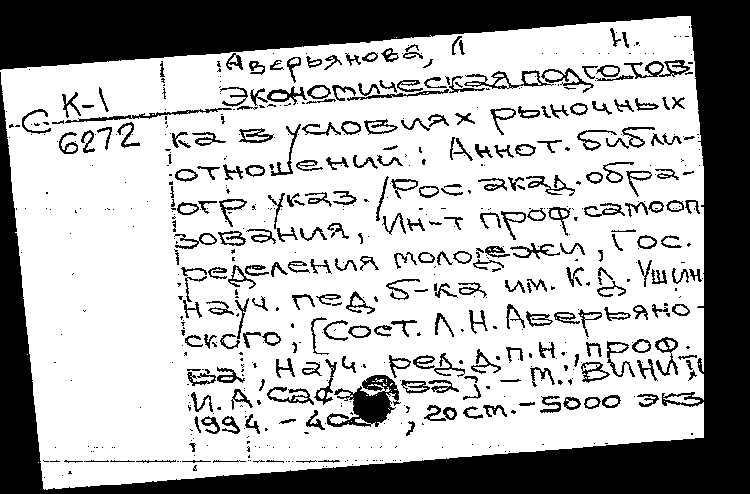 Аверьянова, Л Н.
К-1
Экономическая подготов-
С 6272
ка в условиях рыночных
отношений: Аннот. библи-
огр. указ. /Рос. акад. обра-
зования, Ин-т проф. самооп-
ределения молодежи, Гос.
науч. пед. б-ка им. К.Д. Ушин
ского; [Сост. Л.Н. Аверьяно-
ва; Науч. ред. д.п.н., проф.
И.А. ]. – М.: ВИНИТИ
1994. – ; 20 cm. – 5000 экз